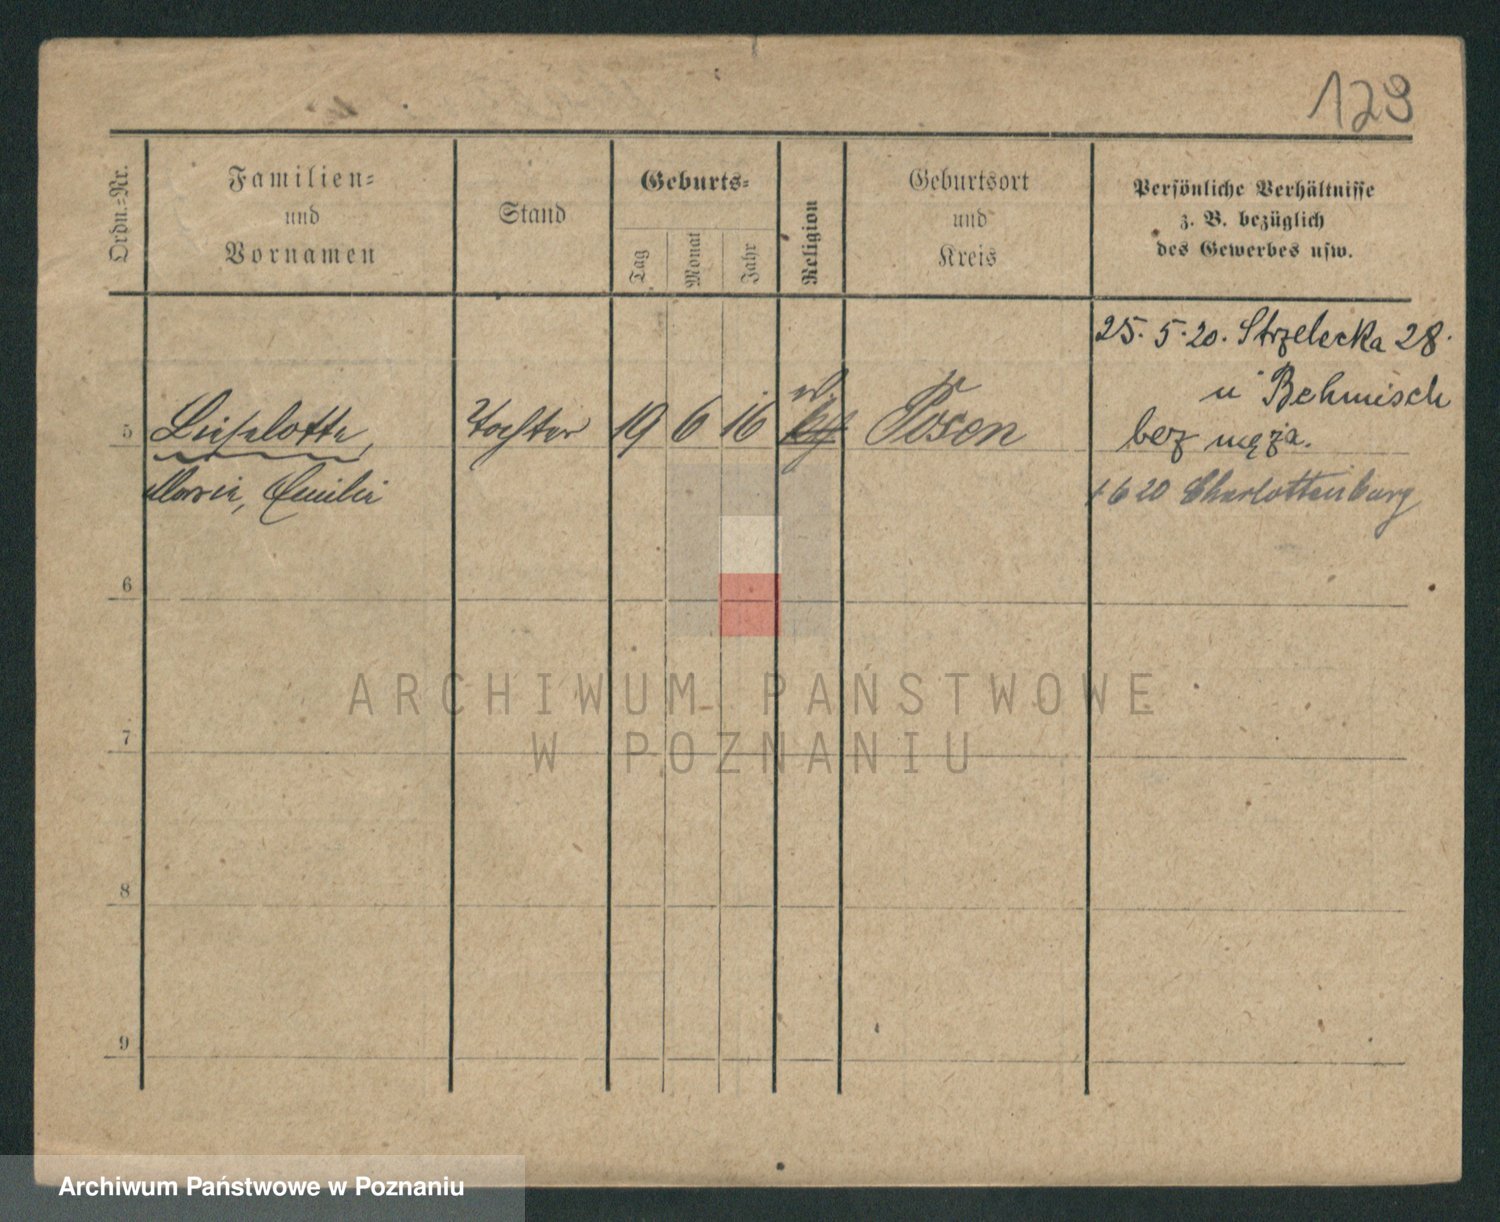 129
Ordn.-Nr.
Familien-
und
Vornamen
Stand
Geburts-
Tag
Monat
Jahr
Religion
Geburtsort
und
Kreis
Persönliche Verhältnisse
z. B. bezüglich
des Gewerbes usw.
25. 5. 20. Strzelecka 28.
u Behmisch
bez męża.
5 Lieselotte, Tochter 19 6 16 Posen
Marie, Emilie
1 6 20 Charlottenburg
6
7
8
9
ARCHIWUM PAŃSTWOWE
W POZNANIU
Archiwum Państwowe w Poznaniu